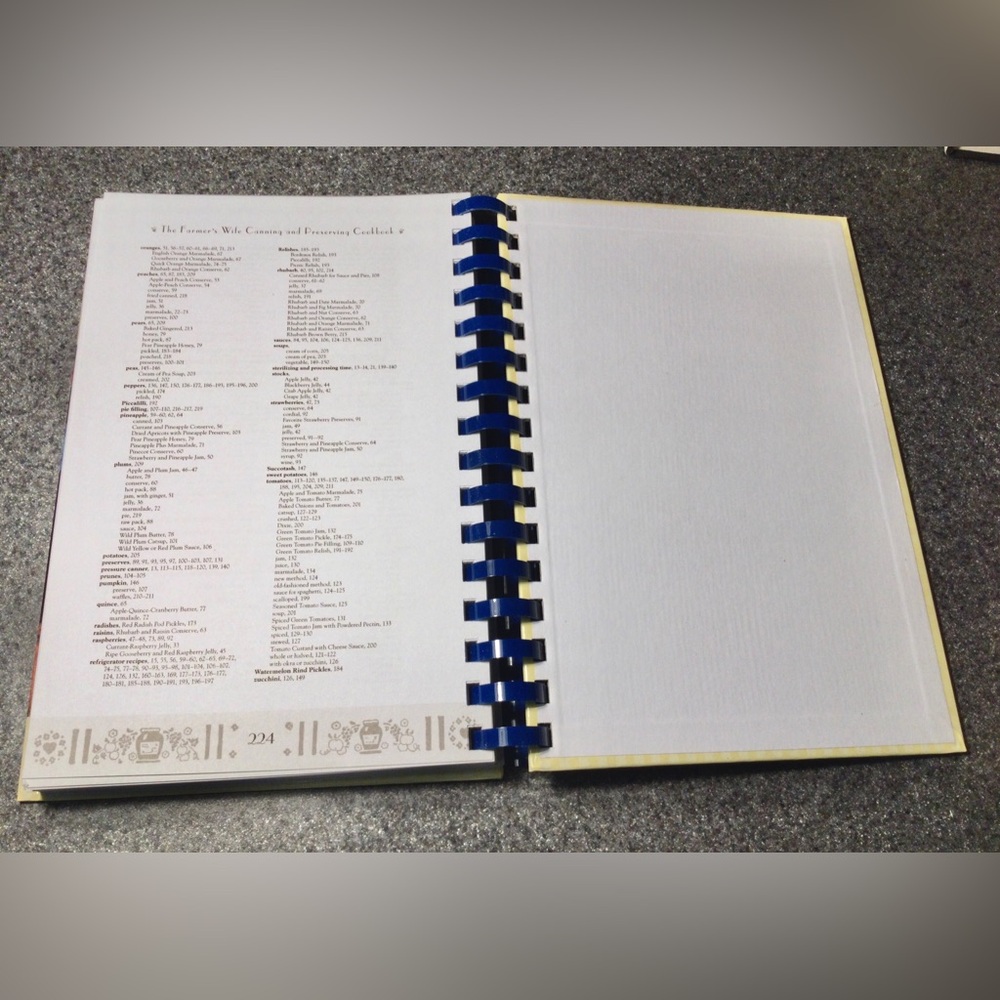 The Farmer's Wife Canning and Preserving Cookbook
oranges, 51, 56–57, 60–61, 66–69, 71, 213
English Orange Marmalade, 67
Gooseberry and Orange Marmalade, 67
Quick Orange Marmalade, 74–75
Rhubarb and Orange Conserve, 62
peaches, 85, 87, 103, 209
Apple and Peach Conserve, 53
Apple-Peach Conserve, 54
conserve, 59
fried canned, 218
jam, 51
jelly, 36
marmalade, 72–73
preserves, 100
pears, 85, 209
Baked Gingered, 213
honey, 79
hot pack, 87
Pear Pineapple Honey, 79
pickled, 183–184
poached, 218
preserves, 100–101
peas, 145–146
Cream of Pea Soup, 203
creamed, 202
peppers, 136, 147, 150, 176–177, 186–193, 195–196, 200
pickled, 174
relish, 190
Piccalilli, 192
pie filling, 107–110, 216–217, 219
pineapple, 59–60, 62, 64
canned, 103
Currant and Pineapple Conserve, 56
Dried Apricots with Pineapple Preserve, 103
Pear Pineapple Honey, 79
Pineapple Plus Marmalade, 73
Pinecot Conserve, 60
Strawberry and Pineapple Jam, 50
plums, 209
Apple and Plum Jam, 46–47
butter, 78
conserve, 60
hot pack, 88
jam, with ginger, 51
jelly, 36
marmalade, 72
pie, 219
raw pack, 88
sauce, 104
Wild Plum Butter, 78
Wild Plum Catsup, 101
Wild Yellow or Red Plum Sauce, 106
potatoes, 205
preserves, 89, 91, 93, 95, 97, 100–103, 107, 131
pressure canner, 13, 113–115, 118–120, 139, 140
prunes, 104–105
pumpkin, 146
preserve, 107
waffles, 210–211
quince, 65
Apple-Quince-Cranberry Butter, 77
marmalade, 72
radishes, Red Radish Pod Pickles, 173
raisins, Rhubarb and Raisin Conserve, 63
raspberries, 47–48, 73, 89, 92
Currant-Raspberry Jelly, 33
Ripe Gooseberry and Red Raspberry Jelly, 45
refrigerator recipes, 15, 53, 56, 59–60, 62–65, 69–72,
74–75, 77–78, 90–93, 95–98, 101–104, 106–107,
124, 126, 132, 160–163, 169, 172–173, 176–177,
180–181, 185–188, 190–191, 193, 196–197
Relishes, 185, 193
Bordeaux Relish, 193
Piccalilli, 192
Picnic Relish, 193
rhubarb, 80, 89, 102, 214
Canned Rhubarb for Sauce and Pies, 108
conserve, 61–62
jelly, 37
marmalade, 69
relish, 191
Rhubarb and Date Marmalade, 70
Rhubarb and Fig Marmalade, 70
Rhubarb and Nut Conserve, 63
Rhubarb and Orange Conserve, 62
Rhubarb and Orange Marmalade, 71
Rhubarb and Raisin Conserve, 63
Rhubarb Brown Betty, 215
sauces, 94, 95, 104, 106, 124–125, 136, 209, 211
soups,
cream of corn, 203
cream of pea, 203
vegetable, 149–150
sterilizing and processing time, 13–14, 21, 139–140
stocks,
Apple Jelly, 42
Blackberry Jelly, 44
Crab Apple Jelly, 42
Grape Jelly, 42
strawberries, 47, 73
conserve, 64
cordial, 92
Favorite Strawberry Preserves, 91
jam, 49
jelly, 42
preserved, 91–92
Strawberry and Pineapple Conserve, 64
Strawberry and Pineapple Jam, 50
syrup, 92
wine, 93
Succotash, 147
sweet potatoes, 146
tomatoes, 113–120, 135–137, 147, 149–150, 176–177, 180,
188, 195, 204, 209, 211
Apple and Tomato Marmalade, 75
Apple Tomato Butter, 77
Baked Onions and Tomatoes, 201
catsup, 127–129
crushed, 122–123
Dixie, 200
Green Tomato Jam, 132
Green Tomato Pickle, 174–175
Green Tomato Pie Filling, 109–110
Green Tomato Relish, 191–192
jam, 132
juice, 130
marmalade, 134
new method, 124
old-fashioned method, 123
sauce for spaghetti, 124–125
scalloped, 199
Seasoned Tomato Sauce, 125
soup, 201
Spiced Green Tomatoes, 131
Spiced Tomato Jam with Powdered Pectin, 133
spiced, 129–130
stewed, 127
Tomato Custard with Cheese Sauce, 200
whole or halved, 121–122
with okra or zucchini, 126
Watermelon Rind Pickles, 184
zucchini, 126, 149
224